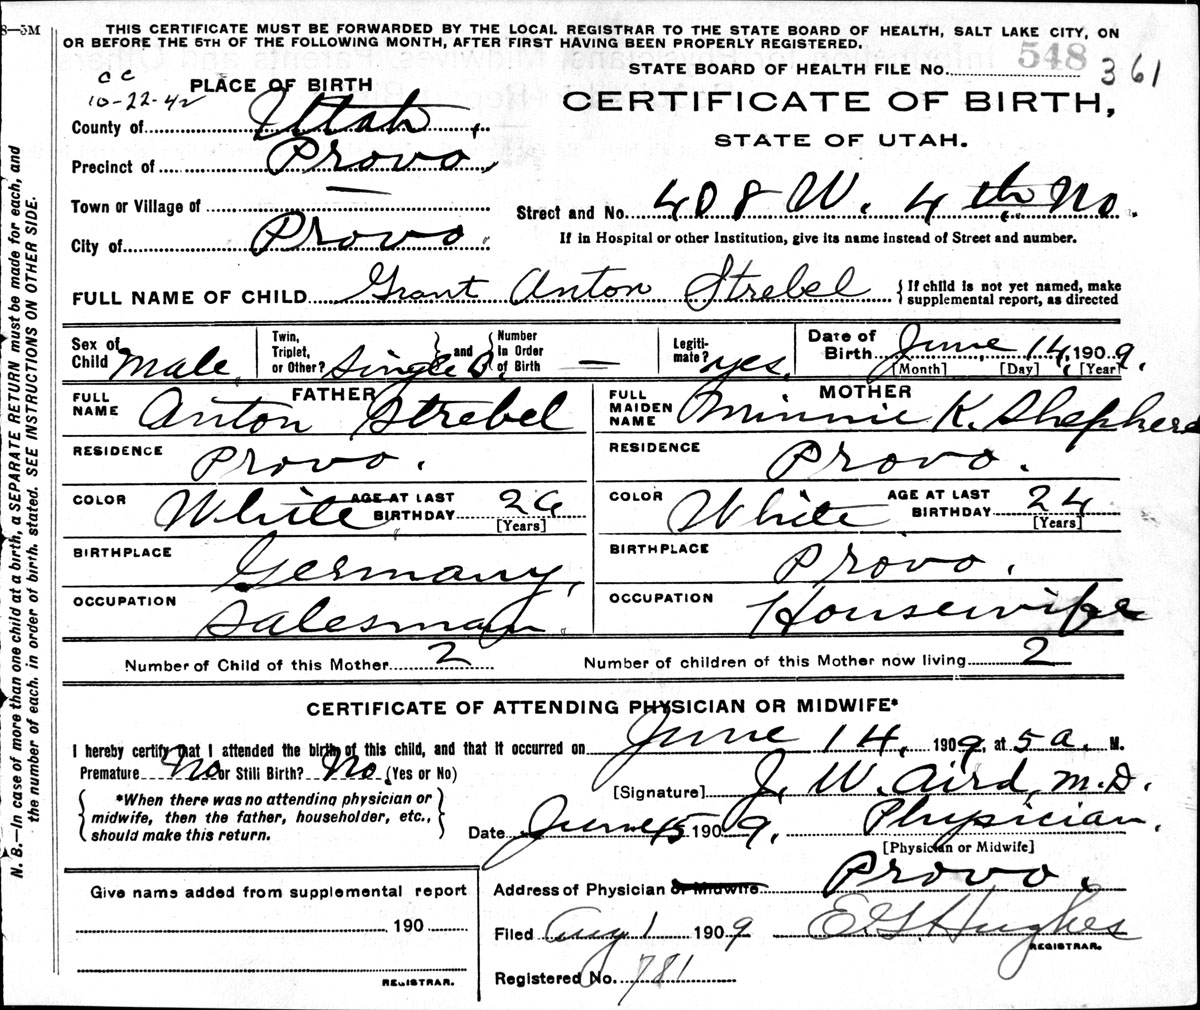 8—5M
THIS CERTIFICATE MUST BE FORWARDED BY THE LOCAL REGISTRAR TO THE STATE BOARD OF HEALTH, SALT LAKE CITY, ON
OR BEFORE THE 5TH OF THE FOLLOWING MONTH, AFTER FIRST HAVING BEEN PROPERLY REGISTERED.
STATE BOARD OF HEALTH FILE No. 548 361
CC
10-22-42
PLACE OF BIRTH
CERTIFICATE OF BIRTH,
STATE OF UTAH.
County of Utah,
Precinct of Provo,
Town or Village of —
Street and No. 408 W. 4th No.
City of Provo.
If in Hospital or other Institution, give its name instead of Street and number.
FULL NAME OF CHILD Grant Anton Strebel
{ If child is not yet named, make
supplemental report, as directed
Sex of Child Male.
Twin, Triplet, or Other? Single } and { Number in Order of Birth —
Legiti-mate? yes.
Date of Birth June 14, 1909.
[Month] [Day] [Year]
FATHER
MOTHER
FULL NAME Anton Strebel
FULL MAIDEN NAME Minnie K. Shepherd
RESIDENCE Provo.
RESIDENCE Provo.
COLOR White AGE AT LAST BIRTHDAY 26 [Years]
COLOR White AGE AT LAST BIRTHDAY 24 [Years]
BIRTHPLACE Germany,
BIRTHPLACE Provo.
OCCUPATION Salesman.
OCCUPATION Housewife
Number of Child of this Mother 2
Number of children of this Mother now living 2
CERTIFICATE OF ATTENDING PHYSICIAN OR MIDWIFE*
I hereby certify that I attended the birth of this child, and that it occurred on June 14, 1909, at 5 a. M.
Premature No or Still Birth? No. (Yes or No)
[Signature] J. W. Aird, M.D.
{ *When there was no attending physician or
midwife, then the father, householder, etc.,
should make this return. }
Date June 15 1909. Physician.
[Physician or Midwife]
Address of Physician or Midwife Provo.
Give name added from supplemental report
190
REGISTRAR.
Filed Aug 1 1909 E G Hughes
REGISTRAR.
Registered No. 781
N. B.—In case of more than one child at a birth, a SEPARATE RETURN must be made for each, and
the number of each, in order of birth, stated. SEE INSTRUCTIONS ON OTHER SIDE.